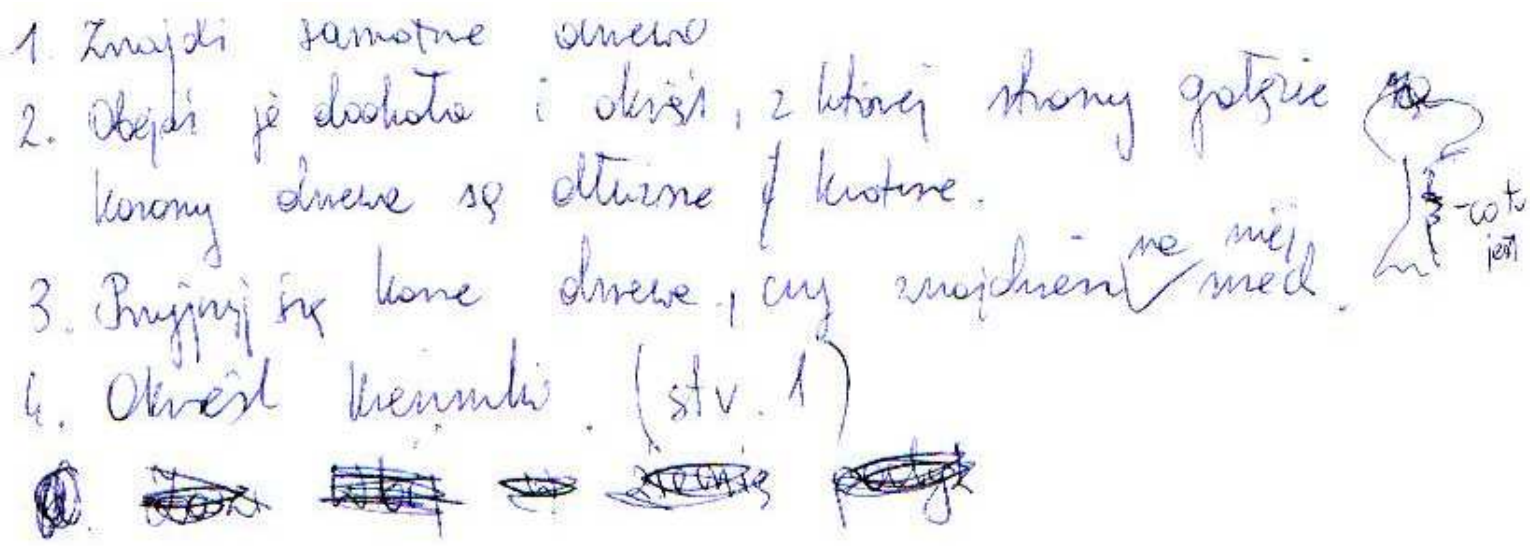 1. Znajdź samotne drzewo
2. Obejdź je dookoła i określ, z której strony gałęzie
korony drzewa są dłuższe / krótsze.
- co tu
jest
3. Przyjrzyj się korze drzewa, czy znajdziesz na niej mech.
4. Określ kierunki. (str. 1)